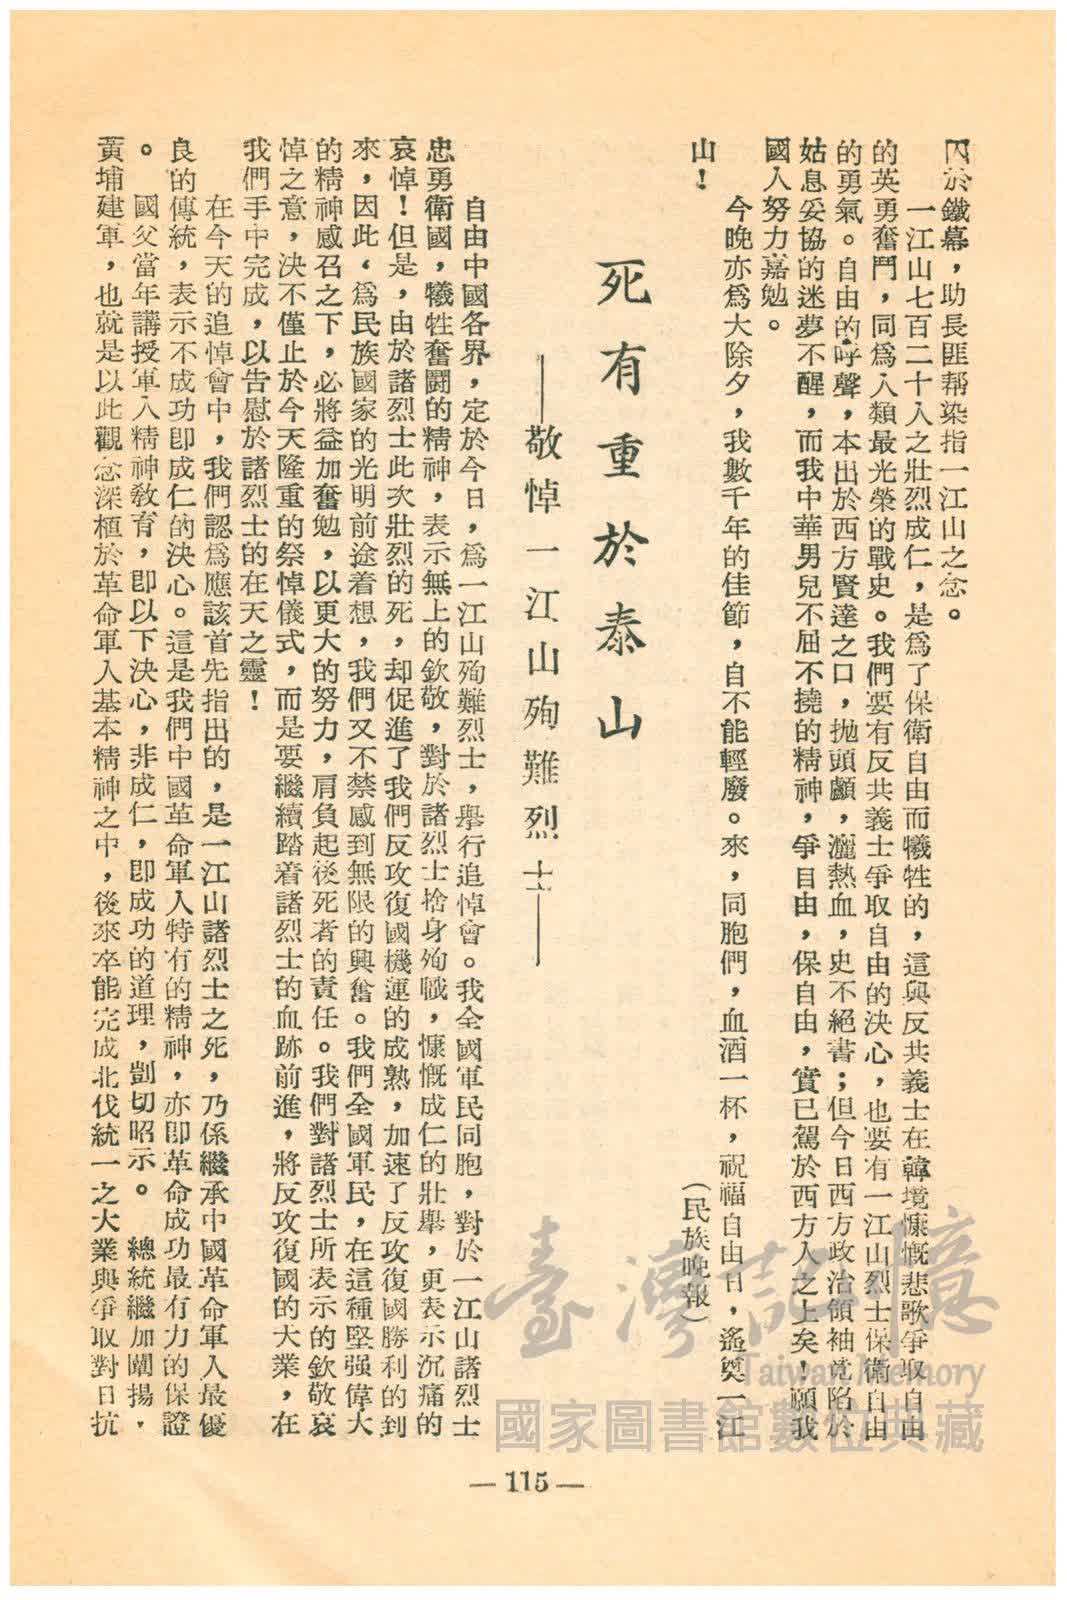 閃於鐵幕，助長匪帮染指一江山之念。
一江山七百二十人之壯烈成仁，是爲了保衛自由而犧牲的，這與反共義士在韓境慷慨悲歌爭取自由
的英勇奮鬥，同爲人類最光榮的戰史。我們要有反共義士爭取自由的決心，也要有一江山烈士保衛自由
的勇氣。自由的呼聲，本出於西方賢達之口，抛頭顱，灑熱血，史不絕書；但今日西方政治領袖竟陷於
姑息妥協的迷夢不醒，而我中華男兒不屈不撓的精神，爭自由，保自由，實已駕於西方人之上矣，願我
國人努力嘉勉。
今晚亦爲大除夕，我數千年的佳節，自不能輕廢。來，同胞們，血酒一杯，祝福自由日，遙奠一江
山！
（民族晚報）
死有重於泰山
——敬悼一江山殉難烈士——
自由中國各界，定於今日，爲一江山殉難烈士，舉行追悼會。我全國軍民同胞，對於一江山諸烈士
忠勇衛國，犧牲奮鬪的精神，表示無上的欽敬，對於諸烈士捨身殉職，慷慨成仁的壯舉，更表示沉痛的
哀悼！但是，由於諸烈士此次壯烈的死，却促進了我們反攻復國機運的成熟，加速了反攻復國勝利的到
來，因此，爲民族國家的光明前途着想，我們又不禁感到無限的興奮。我們全國軍民，在這種堅强偉大
的精神感召之下，必將益加奮勉，以更大的努力，肩負起後死者的責任。我們對諸烈士所表示的欽敬哀
悼之意，決不僅止於今天隆重的祭悼儀式，而是要繼續踏着諸烈士的血跡前進，將反攻復國的大業，在
我們手中完成，以告慰於諸烈士的在天之靈！
在今天的追悼會中，我們認爲應該首先指出的，是一江山諸烈士之死，乃係繼承中國革命軍人最優
良的傳統，表示不成功卽成仁的決心。這是我們中國革命軍人特有的精神，亦卽革命成功最有力的保證
。國父當年講授軍人精神敎育，卽以下決心，非成仁，卽成功的道理，剴切昭示。總統繼加闡揚，
黃埔建軍，也就是以此觀念深植於革命軍人基本精神之中，後來卒能完成北伐統一之大業與爭取對日抗
—115—
臺灣記憶
Taiwan Memory
國家圖書館數位典藏